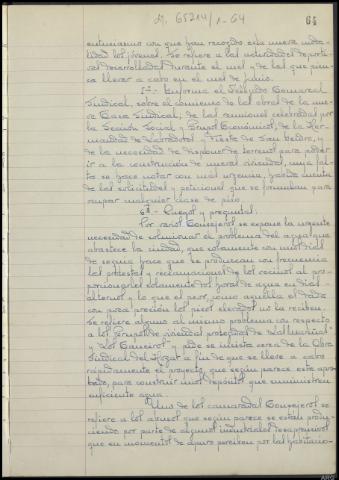 M. 65214/1-64
64
entusiasmo con que han recogido esta nueva moda-
lidad los jóvenes. Se refiere a las actividades de porte
desarrolladas durante el mes y de las que pien-
sa llevar a cabo en el mes de junio.
5º.- Informa el Delegado Comarcal
Sindical, sobre el comienzo de las obras de la nue-
va Casa Sindical, de las reuniones celebradas por
la Sección Social y Grupo Económico, de la Her-
mandad de Labradores y Fiesta de San Isidro, y
de la necesidad de disponer de terrenos para acudir
a la construcción de nuevas viviendas, cuya fal-
ta se hace notar con más urgencia, habida cuenta
de las solicitudes y peticiones que se formulan para
ocupar cualquier clase de piso.
6º.- Ruegos y preguntas:
Por varios Consejeros se expone la urgente
necesidad de solucionar el problema del agua que
abastece la ciudad, que solamente con un día
de sequía hace que se produzcan con frecuencia
las protestas y reclamaciones de los vecinos al pro-
porcionarles solamente dos horas de agua en días
alternos y lo que es peor, como aquella es dada
con poca presión los pisos elevados no la reciben.
Se refiere alguno al mismo problema con respecto
a los Grupos de viviendas protegidas de "Las Mariñas"
y "Los Caneiros" y pide se insista cerca de la Obra
Sindical del Hogar a fin de que se lleve a cabo
rápidamente el proyecto, que según parece está apro-
bado, para construir unos depósitos que suministren
suficiente agua.
Unos de los camaradas Consejeros se
refiere a los abusos que según parece se están produ-
ciendo por parte de algunos industriales desaprensivos
que en momentos de apuro perciben por las habitacio-
ARG